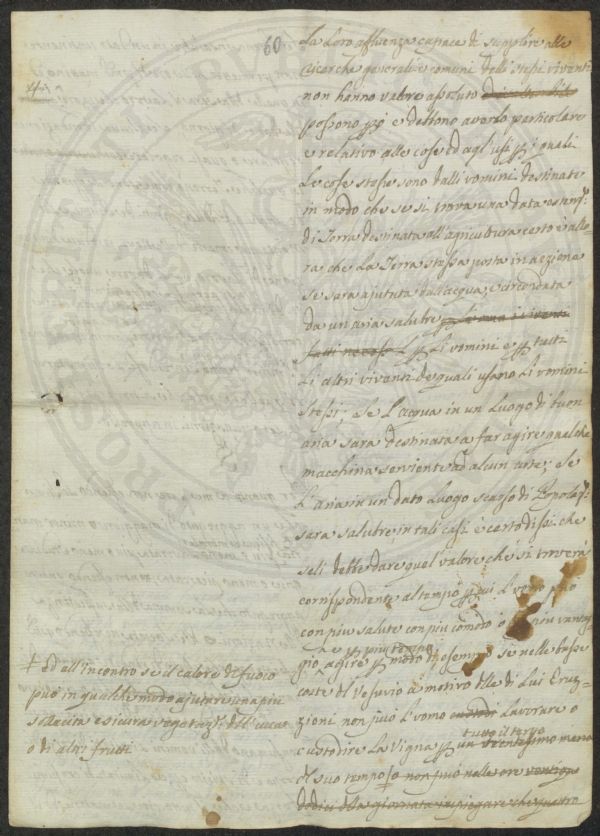 60
La loro affluenza capace di supplire alle
ricerche generali e comuni delli stessi viventi
non hanno valore assoluto
possono ppj e debbono averlo particolare
e relativo alle cose ed agl'usi pp i quali
le cose stesse sono dalli uomini destinate
in modo che se si trova una data estenz.
di Terra destinata all'agricultura certo è allo-
ra che La Terra stessa posta in azione
se sara ajutata dall'acqua, e circondata
da un'aria salubre
Li uomini e pp tutti
Li altri viventi de quali usano Li uomini
stessi; Se L'acqua in un Luogo di buon
aria sara destinata a far agire qualche
macchina serviente ad alcun arte; Se
L'aria in un dato Luogo scarso di Popolaz.
sara salubre in tali casi è certo di poi che
seli debbe dare quel valore che si troverà
corrispondente al tempo pp cui L'uomo può
con piu salute con piu comodo o con vantag-
gio, agire pp modo d'esempio se nelle basse
coste del Vesuvio a motivo delle di Lui Eruz-
zioni non può L'uomo Lavorare o
custodire La Vigna pp tutto il terzo
del suo tempo
dodici della giornata impiegare che quattro
‡ Ed all'incontro se il calore di fuoco
può in qualche modo ajutare una piu
sollecita e sicura vegetaz. dell'uva
o di altri frutti
PROSPERITATI PUBLICAE